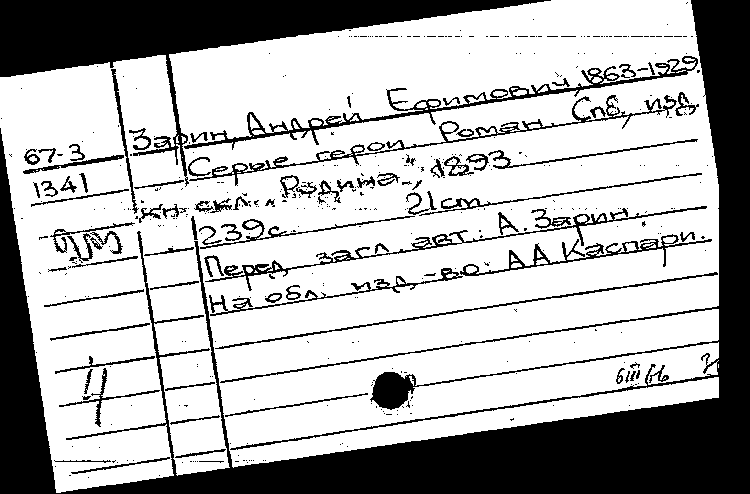 Зарин, Андрей Ефимович, 1863-1929.
67-3
Серые герои. Роман. Спб, изд.
1341
кн скл. "Родина", 1893.
239с. 21cm.
Перед загл. авт.: А. Зарин.
На обл. изд-во: АА Каспари.
4
6III66